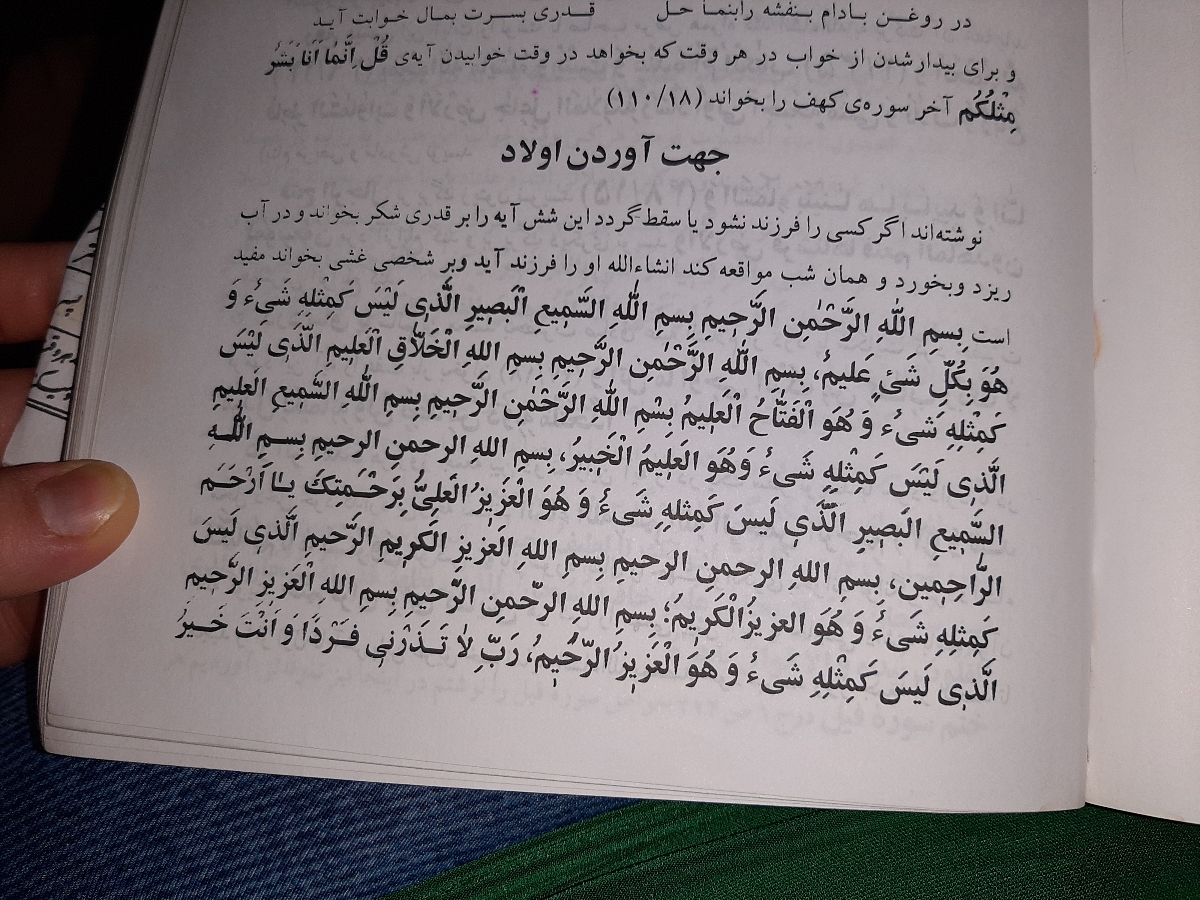 در روغـن بـادام بـنفشه رابنمـا حـل قـدری بسـرت بمـال خـوابت آیـد
و برای بیدار شدن از خواب در هر وقت که بخواهد در وقت خوابیدن آیه‌ی قُلْ اِنَّمٰا اَنَا بَشَرٌ
مِثْلُکُم آخر سوره‌ی کهف را بخواند (۱۱۰/۱۸)
جهت آوردن اولاد
نوشته‌اند اگر کسی را فرزند نشود یا سقط گردد این شش آیه را بر قدری شکر بخواند و در آب
ریزد وبخورد و همان شب مواقعه کند انشاءالله او را فرزند آید وبر شخصی غشی بخواند مفید
است بِسمِ اللّٰهِ الرَّحْمٰنِ الرَّحِیمِ بِسمِ اللّٰهِ السَّمِیعِ الْبَصِیرِ الَّذِی لَیْسَ کَمِثْلِهِ شَیءٌ وَ
هُوَ بِکُلِّ شَیٍٔ عَلیمٌ، بِسمِ اللّٰهِ الرَّحْمٰنِ الرَّحِیمِ بِسمِ اللهِ الْخَلّاٰقِ الْعَلِیمِ الَّذِی لَیْسَ
کَمِثْلِهِ شَیءٌ وَ هُوَ الْفَتّٰاحُ الْعَلِیمُ بِسْمِ اللّٰهِ الرَّحْمٰنِ الرَّحِیمِ بِسمِ اللّٰهِ السَّمِیعِ العَلِیمِ
الَّذِی لَیْسَ کَمِثْلِهِ شَیءٌ وَهُوَ العَلِیمُ الْخَبِیرُ، بِسمِ اللهِ الرحمنِ الرحیمِ بِسـمِ اللّٰـهِ
السَّمِیعِ البَصِیرِ الَّذِی لَیسَ کَمِثلِهِ شَیءٌ وَ هُوَ الْعَزِیزُ العَلِیُّ بِرَحْـمَتِکَ یـٰا اَرْحَمَ
الرّٰاحِمِین، بِسمِ اللهِ الرحمنِ الرحیمِ بِسمِ اللهِ العَزیزِ الکَرِیمِ الرَّحیمِ الَّذِی لَیسَ
کَمِثلِهِ شَیءٌ وَ هُوَ العزیزُ الْکَرِیمُ؛ بِسمِ اللهِ الرحّمنِ الرَّحیمِ بِسمِ اللهِ الْعَزِیزِ الرَّحیمِ
الَّذِی لَیسَ کَمِثْلِهِ شَیءٌ وَ هُوَ الْعَزِیزُ الرَّحِیمُ، رَبِّ لاٰ تَـذَرْنِی فَـرْدًا وَ اَنْتَ خَـیرُ